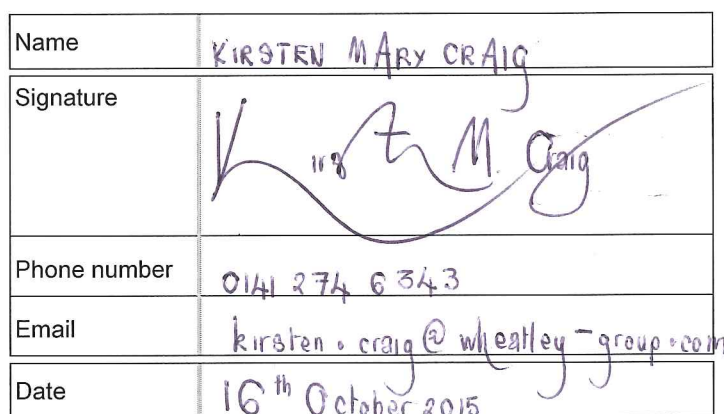 Name KIRSTEN MARY CRAIG
Signature Kirstn M. Craig
Phone number 0141 274 6343
Email kirsten.craig@wheatley-group.com
Date 16th October 2015